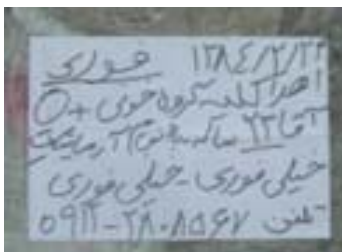 فوری ۱۳۸۴/۲/۲۲
اهدا کلیه گروه خونی +O
آقا ۲۳ ساله با آزمایشات
خیلی فوری - خیلی فوری
تلفن ۰۹۱۲-۲۸۰۸۵۶۷